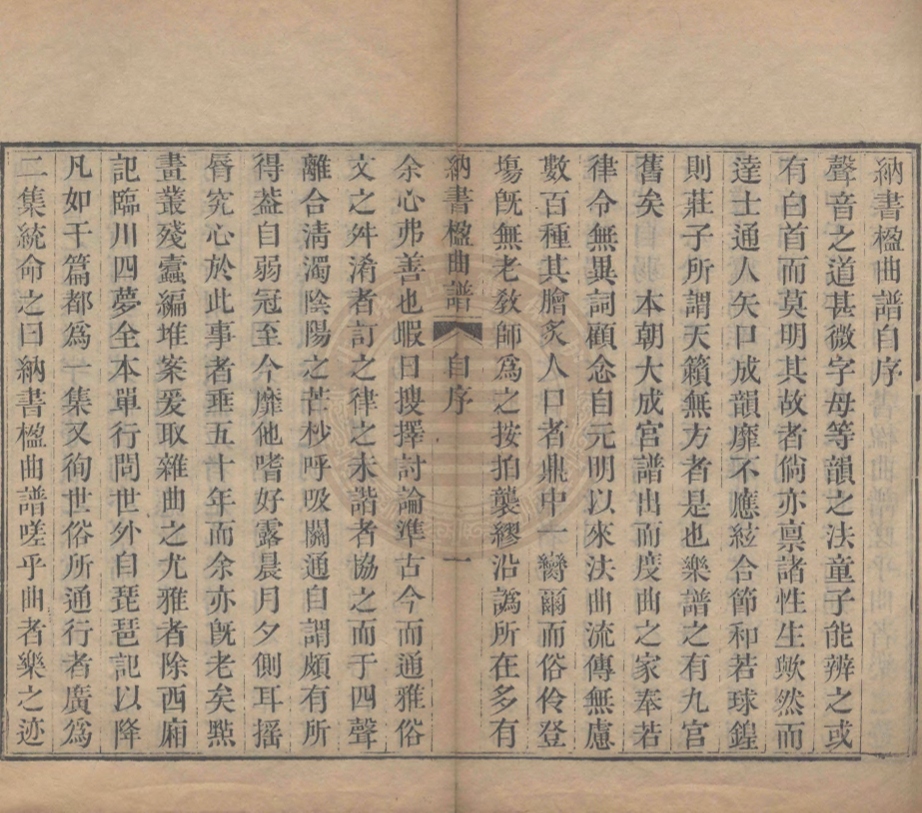 納書楹曲譜自序
聲音之道甚微字母等韻之法童子能辨之或
有白首而莫明其故者倘亦禀諸性生歟然而
達士通人矢口成韻靡不應絃合節和若球鍠
則莊子所謂天籟無方者是也樂譜之有九宮
舊矣　本朝大成宮譜出而度曲之家奉若
律令無異詞顧念自元明以來法曲流傳無慮
數百種其膾炙人口者鼎中一臠爾而俗伶登
塲旣無老敎師爲之按拍襲繆沿譌所在多有
納書楹曲譜　自序　一
余心弗善也暇日搜擇討論準古今而通雅俗
文之舛淆者訂之律之未諧者協之而于四聲
離合淸濁陰陽之芒杪呼吸關通自謂頗有所
得葢自弱冠至今靡他嗜好露晨月夕側耳搖
脣究心於此事者垂五十年而余亦旣老矣㸃
畫叢殘蠹編堆案爰取雜曲之尤雅者除西廂
記臨川四夢全本單行問世外自琵琶記以降
凡如干篇都爲一集又徇世俗所通行者廣爲
二集統命之曰納書楹曲譜嗟乎曲者樂之迹